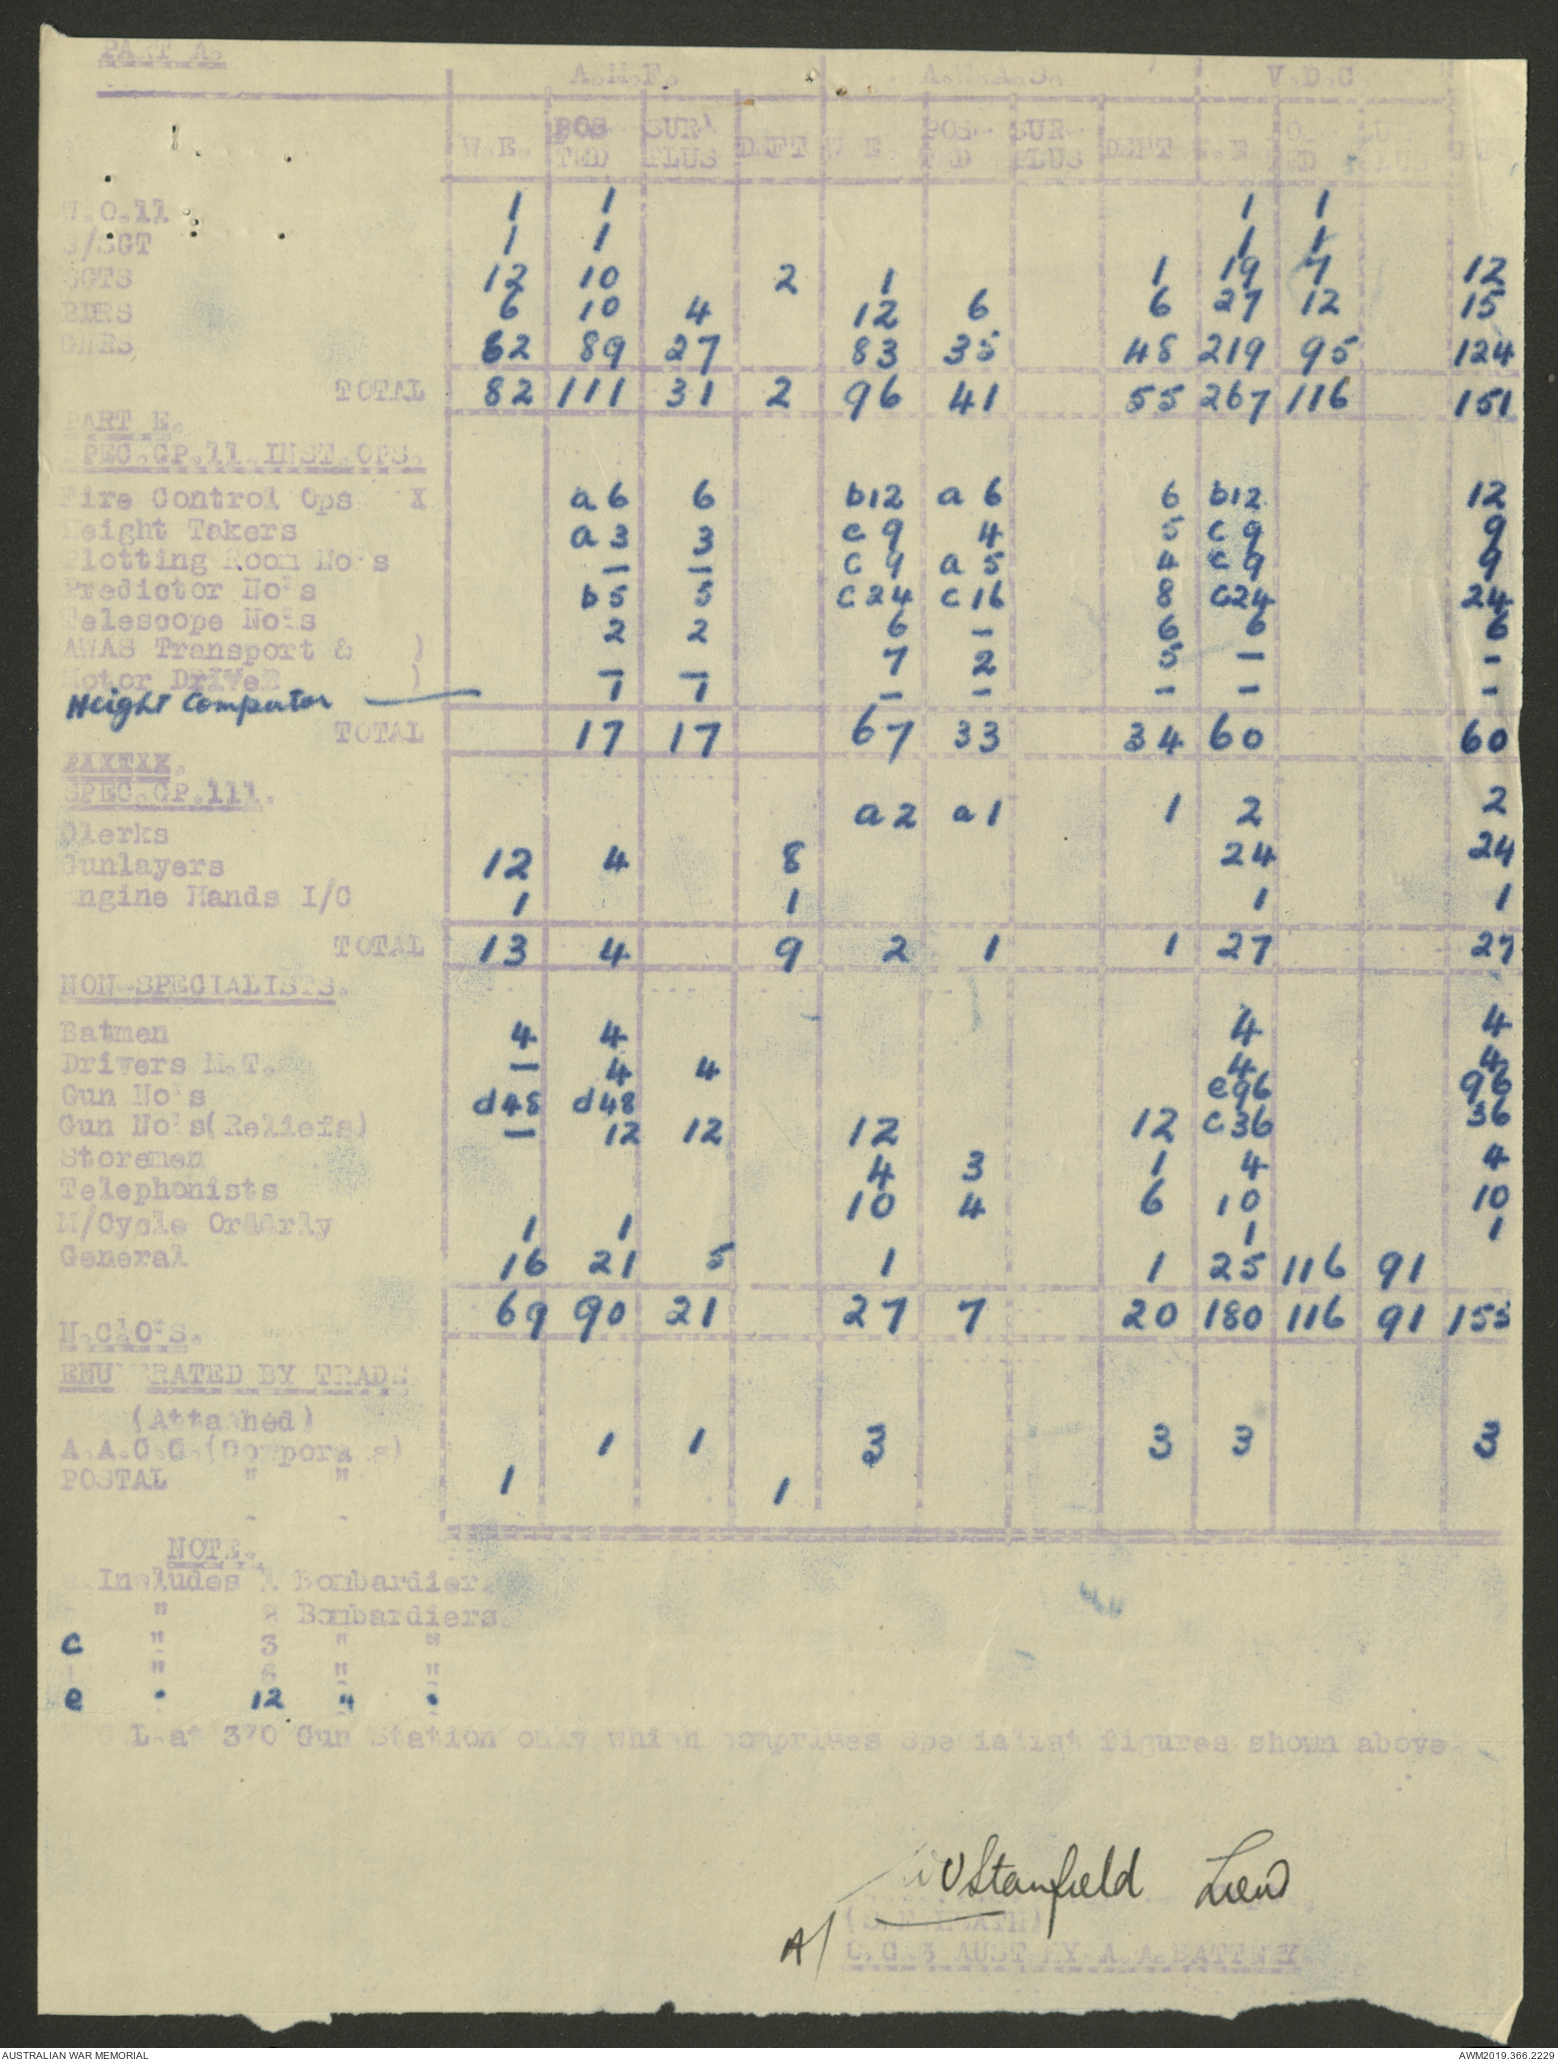 PART A.
A.M.F. A.W.A.S. V.D.C
W.E. POSTED SURPLUS DEFT W.E. POSTED SURPLUS DEFT W.E.
W.O.11 1 1 1 1
S/SGT 1 1 1 1
SGTS 12 10 2 1 1 19 7 12
BDRS 6 10 4 12 6 6 27 12 15
GNRS 62 89 27 83 35 48 219 95 124
TOTAL 82 111 31 2 96 41 55 267 116 151
PART E.
SPEC.GP.11 INST.OPS.
Fire Control Ops X a 6 6 b12 a 6 6 b12 12
Height Takers a 3 3 c 9 4 5 c 9 9
Plotting Room No's — — c 9 a 5 4 c 9 9
Predictor No's b 5 5 c 24 c 16 8 c24 24
Telescope No's 2 2 6 — 6 6 6
AWAS Transport & ) 7 2 5 — -
Motor DriveR ) — —
Height Computor — 1 1 — - - — -
TOTAL 17 17 67 33 34 60 60
SPEC.GP.111.
Clerks a 2 a 1 1 2 2
Gunlayers 12 4 8 24 24
Engine Hands I/C 1 1 1 1
TOTAL 13 4 9 2 1 1 27 27
NON-SPECIALISTS.
Batmen 4 4 4 4
Drivers M.T. — 4 4 4 4
Gun No's d48 d48 e96 96
Gun No's(Reliefs) — 12 12 12 12 c36 36
Storemen 4 3 1 4 4
Telephonists 10 4 6 10 10
M/Cycle Orderly 1 1 1 1
General 16 21 5 1 1 25 116 91
69 90 21 27 7 20 180 116 91 155
N.C.O's.
ENUMERATED BY TRADE
(Attached)
A.A.C.C.(Corporals) 1 1 3 3 3 3
POSTAL " " 1 1
NOTE.
Includes 1 Bombardier.
" 2 Bombardiers.
c " 3 " "
" 6 " "
e " 12 " "
L at 370 Gun Station only which comprises specialist figures shown above
Stanfield Lieut
A/
O.C. 3 AUST HY A.A.BATTERY
AUSTRALIAN WAR MEMORIAL
AWM2019.366.2229